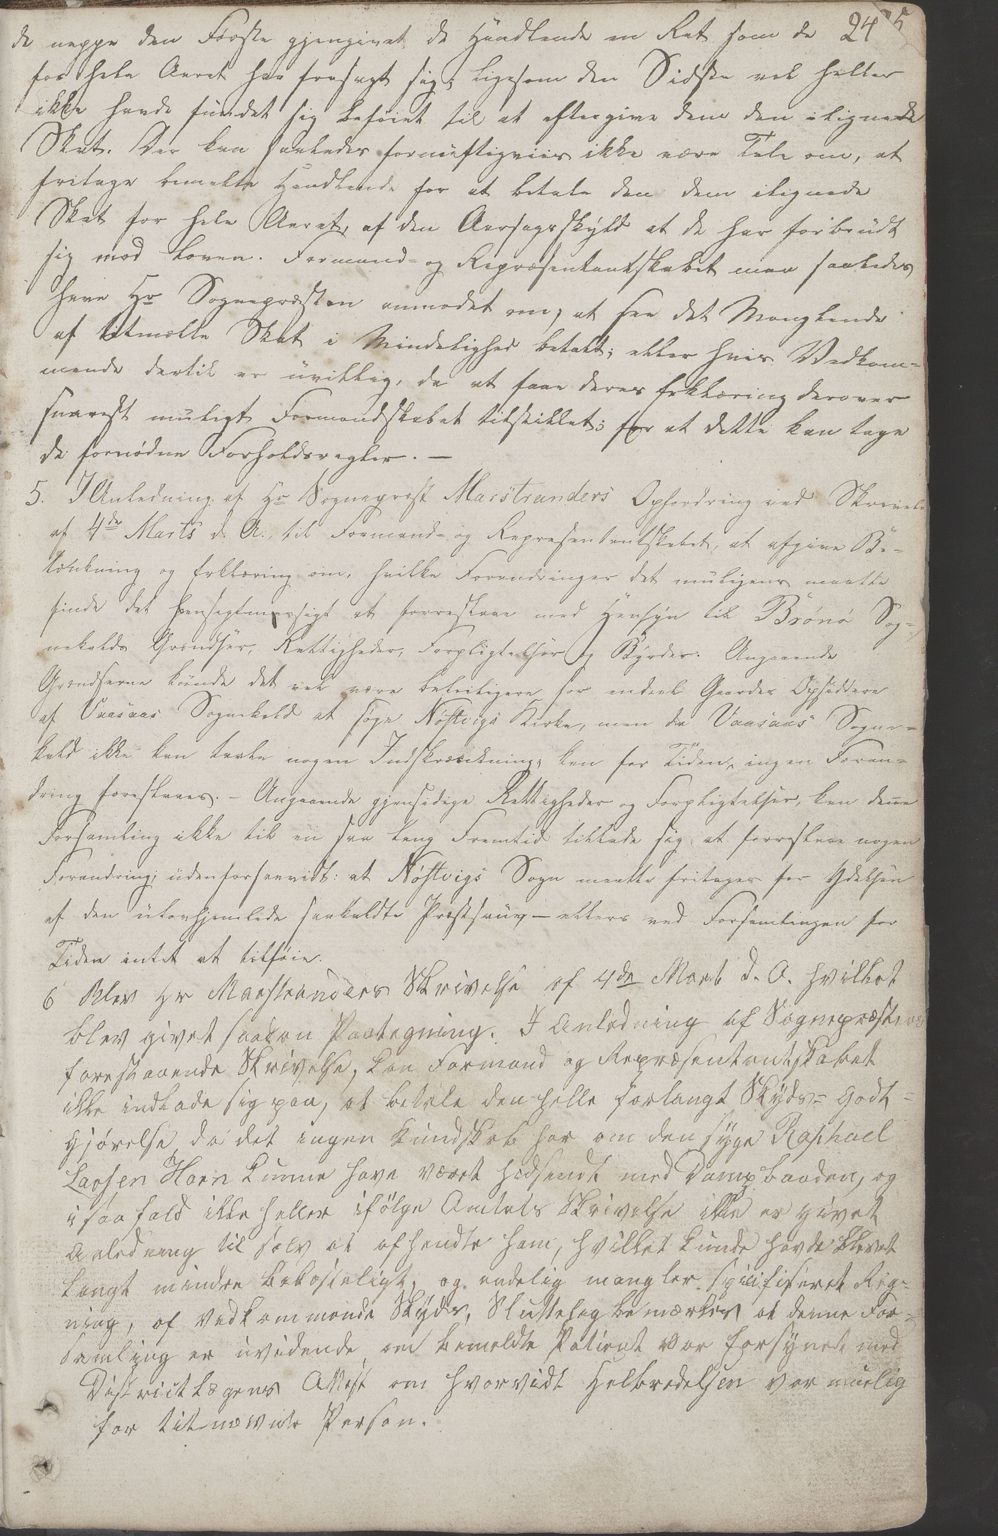 24
5
da neppe den Første gjengivet de Handlende en Ret som de
for hele Aaret har frasagt sig, ligesom den Sidste vel heller
ikke havde fundet sig beføiet til at eftergive dem den ilignede
Skat. Der kan saaledes fornuftigviis ikke være Tale om, at
fritage bemelte Handlende for at betale den dem ilignede
Skat for hele Aaret, af den Aarsagsskyld at de har forbrudt
sig mod Loven. Formand- og Repræsentantskabet maa saaledes
have Hr Sognepræsten anmodet om, at see det Manglende
af bemelte Skat i Mindelighed betalt; eller hvis Vedkom=
mende dertil er uvillig, da at faae deres Erklæring derover
snarest muligt Formandskabet tilstillet; for at dette kan tage
de fornødne Forholdsregler. —
5. I Anledning af Hr Sogneprest Marstranders Opfordring ved Skrivelse
af 4de Marts d. A. til Formand- og Repræsentantskabet, at afgive Be-
tænkning og Erklæring om, hvilke Forandringer det muligens maatte
finde det hensigtmæssigt at foreslaae med Hensyn til Brønø Sog-
nekalds Grændser, Rettigheder, Forpligtelser og Byrder. Angaaende
Grændserne kunde det vel være beleiligere for endeel Gaardes Opsiddere
af Vaasaas Sognekald at søge Nøstvigs Kirke, men da Vaasaas Sogne-
kald ikke kan taale nogen Indskrænkning, kan for Tiden, ingen Foran-
dring foreslaaes. — Angaaende gjensidige Rettigheder og Forpligtelser, kan denne
Forsamling ikke til en saa lang Fremtid tillade sig, at foreslaae nogen
Forandring; udenforsaavidt: at Nøstvigs Sogn maatte fritages for Ydelsen
af den uhjemlede saakaldte Præstsauv — ellers ved Forsamlingen for
Tiden intet at tilføie.
6 Blev Hr Marstranders Skrivelse af 4de Marts d. A. hvilket
blev givet saadan Paategning. I Anledning af Sognepræstens
forestaaende Skrivelse, kan Formand og Repræsentantskabet
ikke indlade sig paa, at betale den hele forlangt Skyds= Godt=
gjørelse, da det ingen Kundskab har om den syge Raphael
Larsen Horn kunne have været hidsendt med Dampbaaden, og
i saa fald ikke heller ifølge Amtets Skrivelse ikke er givet
Anledning til selv at afhendte ham, hvilket kunde havde blevet
langt mindre bekosteligt, og endelig mangler spicifiseret Reg-
ning, af vedkommende Skyds, Sluttelig bemærkes at denne For-
samling er uvidende, om bemeldte Patient var forsynet med
Districtlægens Attest om hvorvidt Helbredelsen var muelig
for titnævnte Person.